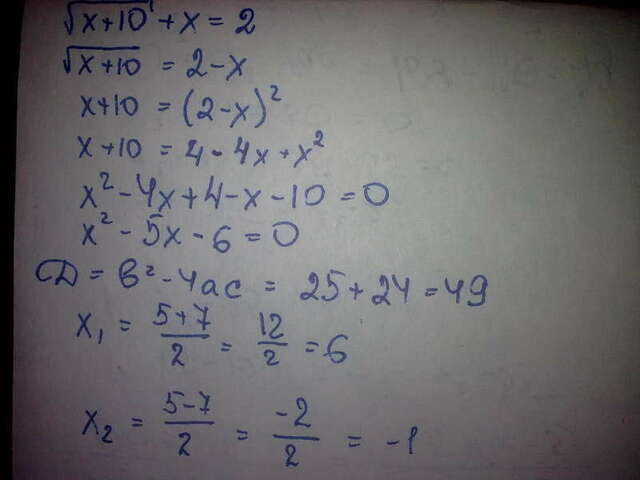 √x+10 + x = 2
√x+10 = 2-x
x+10 = (2-x)²
x+10 = 4-4x+x²
x²-4x+4-x-10=0
x²-5x-6=0
D = b²-4ac = 25+24=49
x₁ = 5+7/2 = 12/2 = 6
x₂ = 5-7/2 = -2/2 = -1